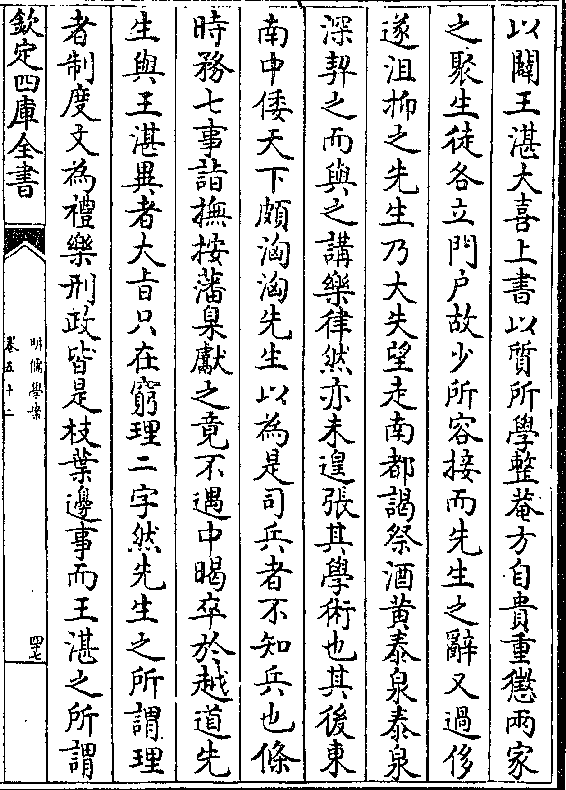 以闢王湛大喜上書以質所學整菴方自貴重懲兩家
之聚生徒各立門戶故少所容接而先生之辭又過侈
遂沮抑之先生乃大失望走南都謁祭酒黄泰泉泰泉
深契之而與之講樂律然亦未遑張其學術也其後東
南中倭天下頗洶洶先生以為是司兵者不知兵也條
時務七事詣撫按藩臬獻之竟不遇中暍卒於越道先
生與王湛異者大㫖只在窮理二字然先生之所謂理
者制度文為禮樂刑政皆是枝葉邊事而王湛之所謂
欽定四庫全書
明儒學案
卷五十二
四七